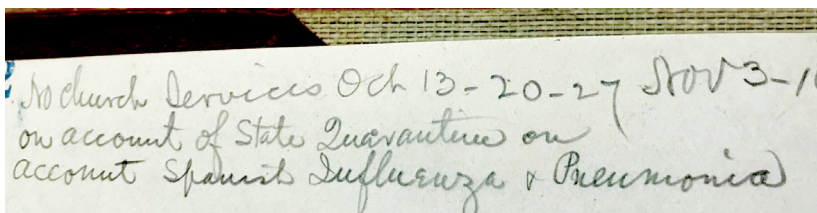 No church Services Oct 13-20-27 Nov 3-1
on account of State Quarantine on
account Spanish Influenza & Pneumonia